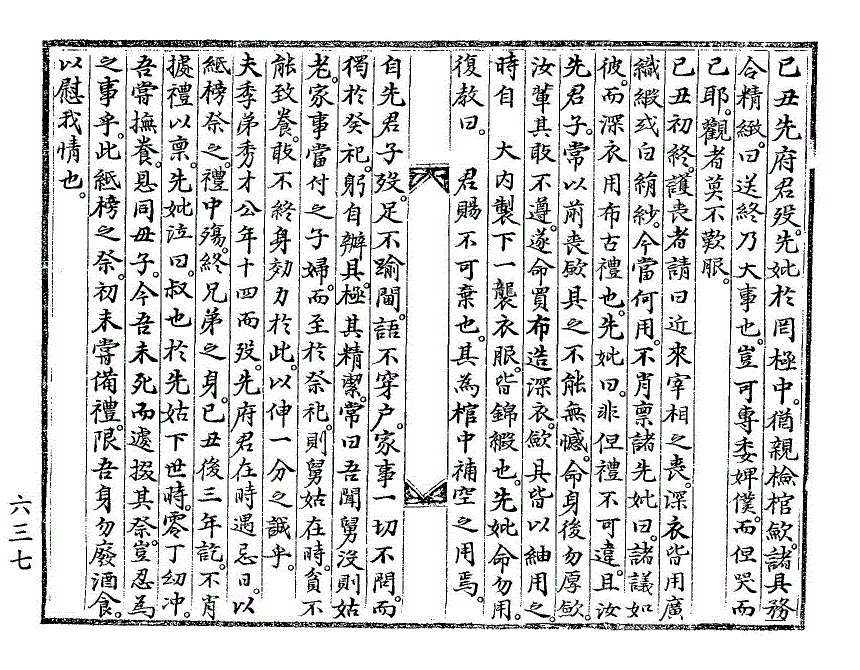 己丑先府君歿先妣於罔極中猶親檢棺歛諸具務
合精緻曰送終乃大事也豈可專委婢僕而但哭而
已耶觀者莫不歎服
己丑初終護喪者請曰近來宰相之喪深衣皆用廣
織緞或白絹紗今當何用不肖禀諸先妣曰諸議如
彼而深衣用布古禮也先妣曰非但禮不可違且汝
先君子常以前喪歛具之不能無憾命身後勿厚歛
汝輩其敢不遵遂命買布造深衣歛具皆以紬用之
時自 大內製下一襲衣服皆錦緞也先妣命勿用
復教曰 君賜不可棄也其為棺中補空之用焉
自先君子歿足不踰閫語不穿户家事一切不問而
獨於癸祀躬自辦具極其精潔常曰吾聞舅沒則姑
老家事當付之子婦而至於祭祀則舅姑在時貧不
能致養敢不終身効力於此以伸一分之誠乎
夫季弟秀才公年十四而歿先府君在時遇忌日以
紙榜祭之禮中殤終兄弟之身己丑後三年訖不肖
據禮以禀先妣泣曰叔也於先姑下世時零丁幼冲
吾嘗撫養恩同母子今吾未死而遽掇其祭豈忍為
之事乎此紙榜之祭初未嘗備禮限吾身勿廢酒食
以慰我情也
六三七